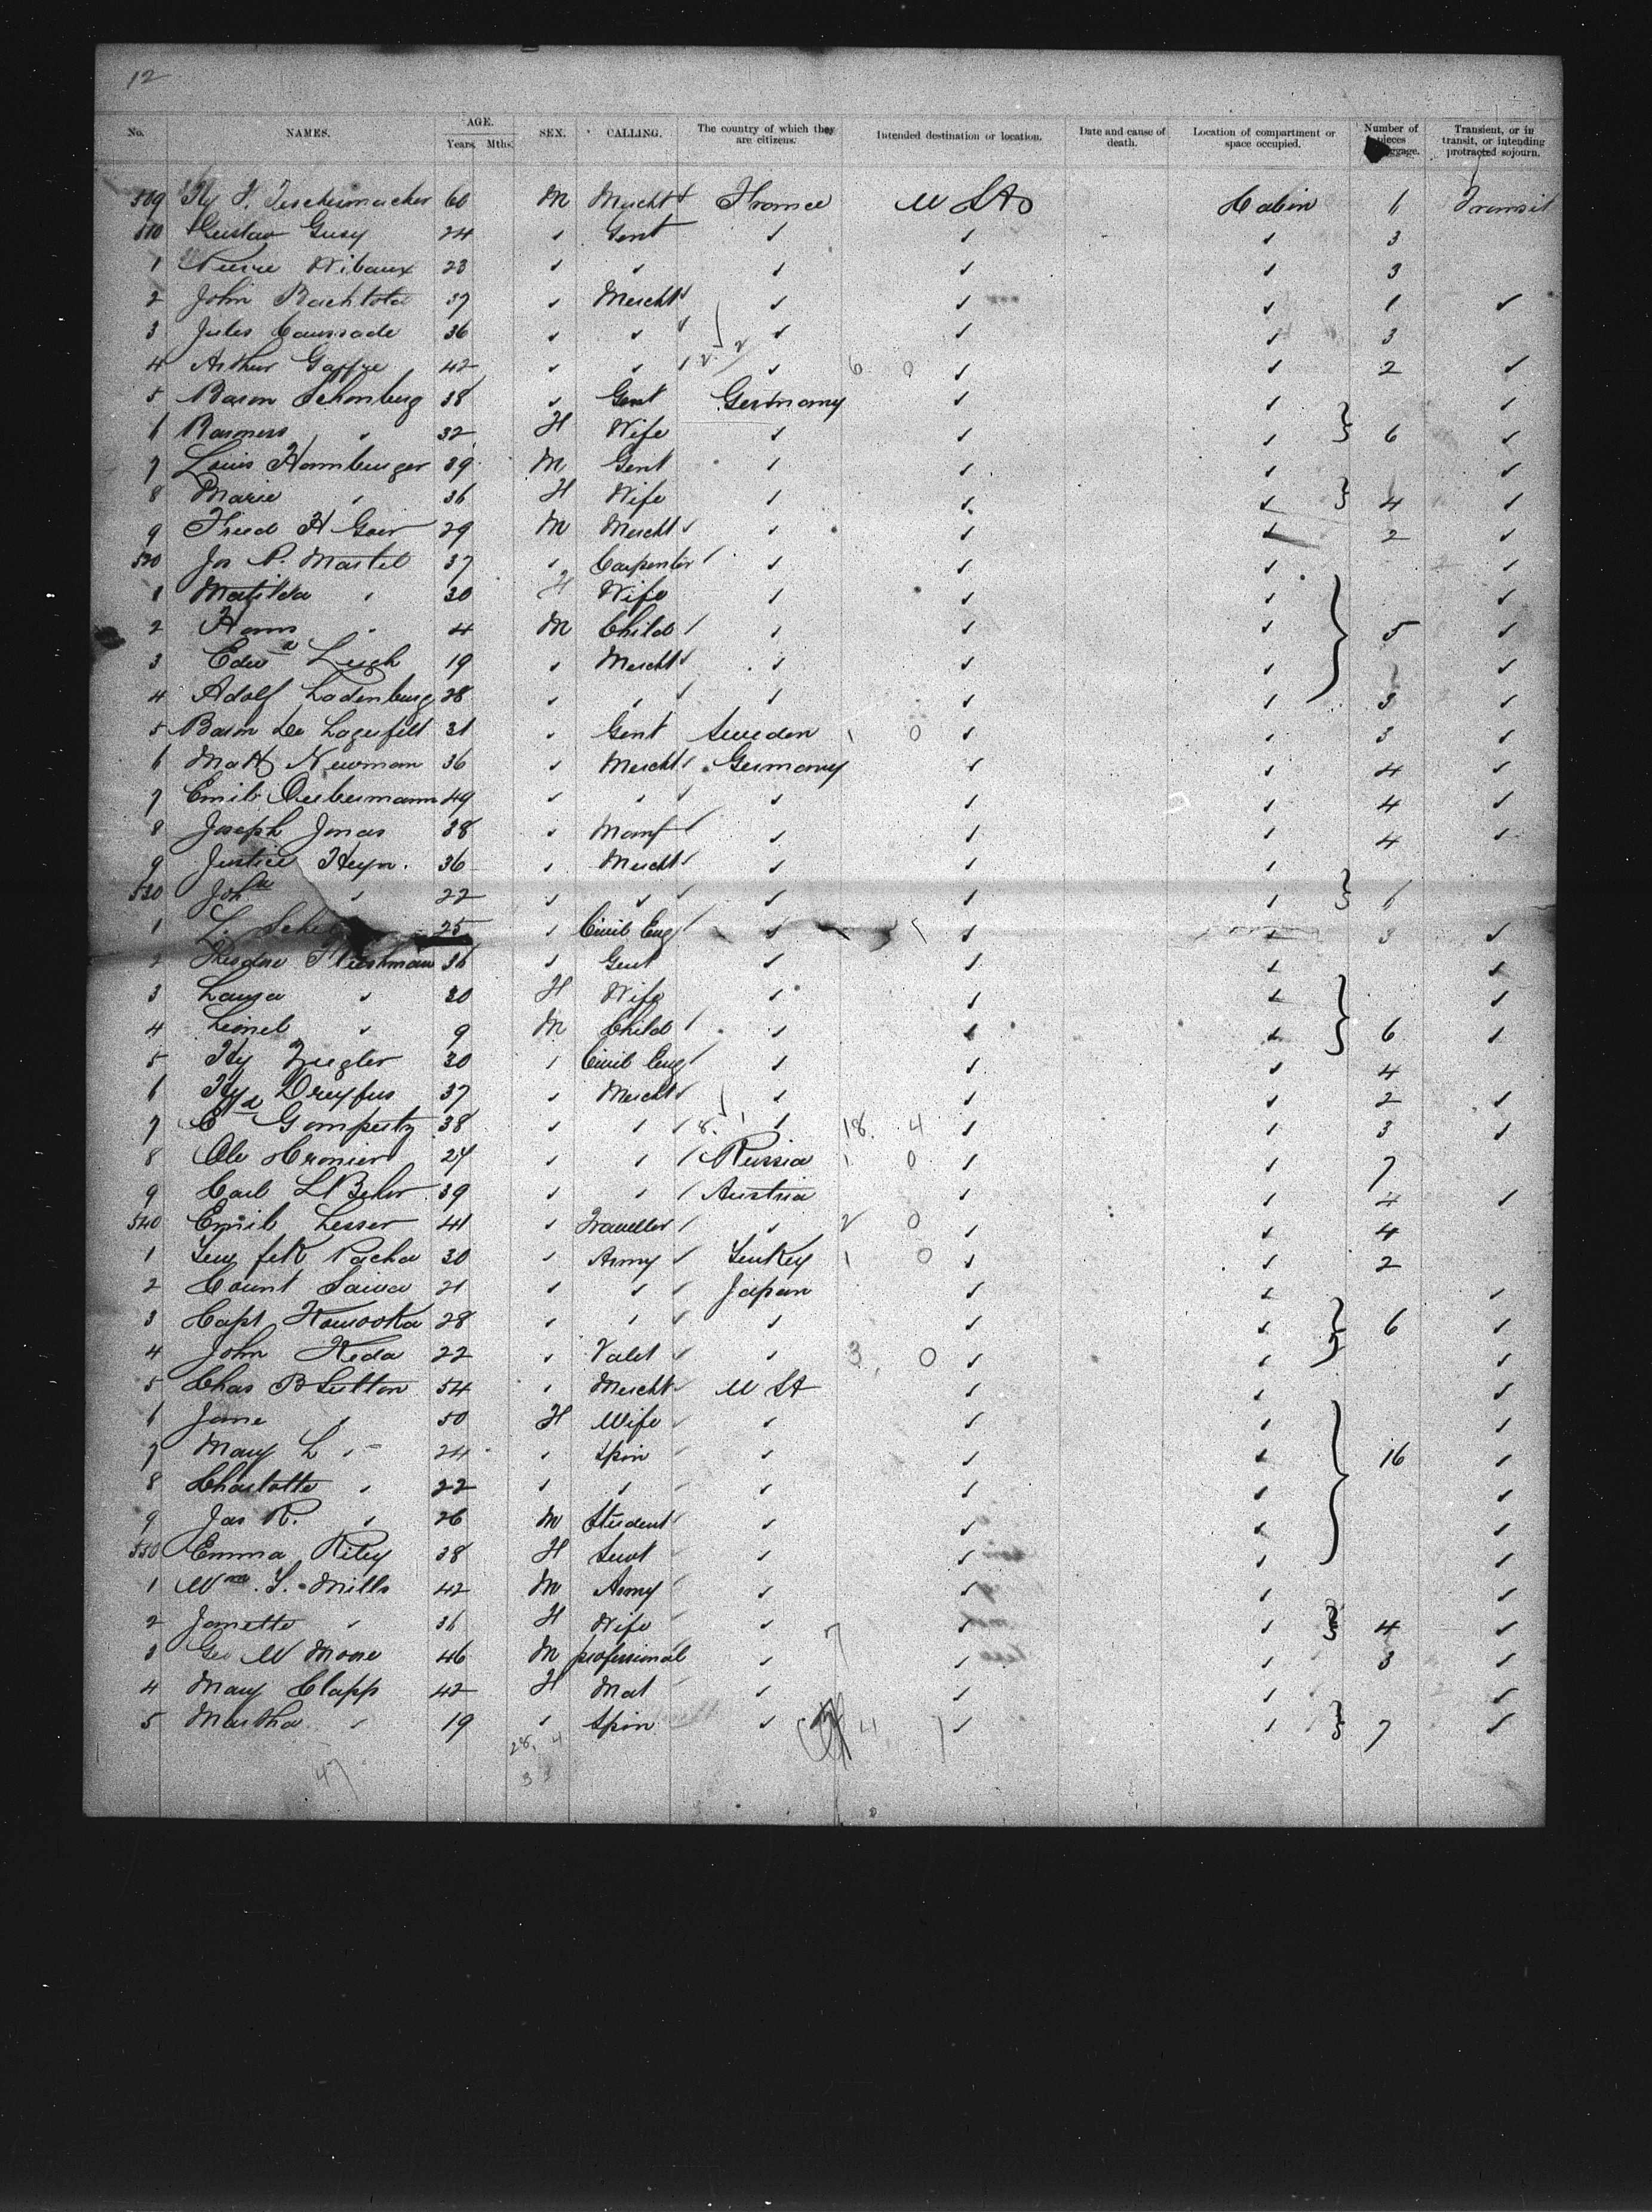 12
No. NAMES. AGE. Years. Mths. SEX. CALLING. The country of which they are citizens. Intended destination or location. Date and cause of death. Location of compartment or space occupied. Number of pieces Transient, or in transit, or intending protracted sojourn.
509 Hy F. Teschemacher 60 M Mercht France U Sts Cabin Transit
510 Gustav Gusy 24 ✓ Gent ✓ ✓ ✓ 3
1 Pierre Wibaux 23 ✓ ✓ ✓ ✓ ✓ 3
2 John Bachtold 37 ✓ Mercht ✓ ✓ ✓ 1 ✓
3 Jules Caussade 36 ✓ ✓ ✓ ✓ ✓ 3
4 Arthur 42 ✓ ✓ ✓ 6 0 ✓ ✓ 2 ✓
5 Baron Schonberg 38 ✓ Gent Germany ✓ ✓ ✓
6 Baroness ✓ 32 F Wife ✓ ✓ ✓ 6 ✓
7 Louis Hamburger 39 M Gent ✓ ✓ ✓ ✓
8 Marie ✓ 36 F Wife ✓ ✓ ✓ 4 ✓
9 Fried H 29 M Mercht ✓ ✓ ✓ 2 ✓
520 Jos P. Martel 37 ✓ Carpenter ✓ ✓ ✓ ✓
1 Matilda ✓ 30 F Wife ✓ ✓ ✓ ✓
2 Hans ✓ 4 M Child ✓ ✓ ✓ 5 ✓
3 Edwd Leigh 19 ✓ Mercht ✓ ✓ ✓ ✓
4 Adolf Ladenburg 28 ✓ ✓ ✓ ✓ ✓ 3 ✓
5 Baron De Lagerfelt 31 ✓ Gent Sweden 1 0 ✓ ✓ 3 ✓
6 Matt Newman 36 ✓ Mercht Germany ✓ ✓ 4 ✓
7 Emil 49 ✓ ✓ ✓ ✓ ✓ 4 ✓
8 Joseph Jonas 38 ✓ Manf ✓ ✓ ✓ 4 ✓
9 Justice Heyn. 36 ✓ Mercht ✓ ✓ ✓
530 ✓ 22 ✓ ✓ ✓ ✓ ✓ 6
1 L. 25 ✓ Civil Eng ✓ ✓ ✓ 3 ✓
2 36 ✓ Gent ✓ ✓ ✓ ✓
3 Laura ✓ 30 F Wife ✓ ✓ ✓ ✓
4 Lionel ✓ 9 M Child ✓ ✓ ✓ 6 ✓
5 Hy Ziegler 30 ✓ Civil Eng ✓ ✓ ✓ 4
6 Hy Dreyfus 37 ✓ Mercht ✓ ✓ ✓ 2 ✓
7 Ed Gompertz 38 ✓ ✓ 8. 1 ✓ 18. 4 ✓ ✓ 3 ✓
8 Ale 24 ✓ ✓ Russia 1 0 ✓ ✓ 7
9 Carl L Behr 39 ✓ ✓ Austria ✓ ✓ 4 ✓
540 Emil Lesser 41 ✓ Traveller ✓ 2 0 ✓ ✓ 4
1 Tewfek Pacha 30 ✓ Army Turkey 1 0 ✓ ✓ 2
2 Count 21 ✓ ✓ Japan ✓ ✓ ✓
3 Capt 28 ✓ ✓ ✓ ✓ ✓ 6 ✓
4 John Keda 22 ✓ Valet ✓ 3, 0 ✓ ✓ ✓
5 Chas B Sutton 54 ✓ Mercht U St ✓ ✓ ✓
6 Jane ✓ 50 F Wife ✓ ✓ ✓ ✓
7 Mary L ✓ 24 ✓ Spin ✓ ✓ ✓ 16 ✓
8 Charlotte ✓ 22 ✓ ✓ ✓ ✓ ✓ ✓
9 Jas R. ✓ 26 M Student ✓ ✓ ✓ ✓
550 Emma Riley 38 F Servt ✓ ✓ ✓ ✓
1 Wm. S. Mills 42 M Army ✓ ✓ ✓ ✓
2 Janette ✓ 36 F Wife ✓ ✓ ✓ 4 ✓
3 Geo W Moore 46 M professional ✓ ✓ ✓ 3 ✓
4 Mary Clapp 42 F Mat ✓ ✓ ✓ ✓
5 Martha ✓ 19 ✓ Spin ✓ 4 ✓ ✓ 7 ✓
28, 4
47 3